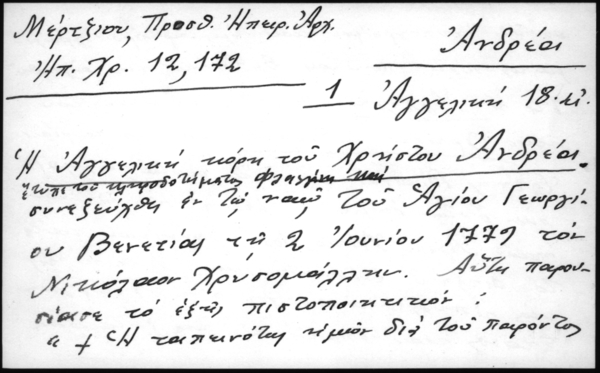 Μέρτζιου, Προσθ. Ἠπειρ. Ἀρχ.
Ἠπ. Χρ. 12, 172
Ἀνδρέαι
1 Ἀγγελική 18. αἰ.
Ἡ Ἀγγελική κόρη τοῦ Χρήστου Ἀνδρέαι.
κληροδοτήματος Φλαγγίνη καί
συνεζεύχθη ἐν τῷ ναῷ τοῦ Ἁγίου Γεωργί-
ου Βενετίας τῇ 2 Ἰουνίου 1779 τόν
Νικόλαον Χρυσομάλλην. Αὕτη παρου-
σίασε τό ἑξῆς πιστοποιητικόν:
" + Ἡ ταπεινότης ἡμῶν διά τοῦ παρόντος